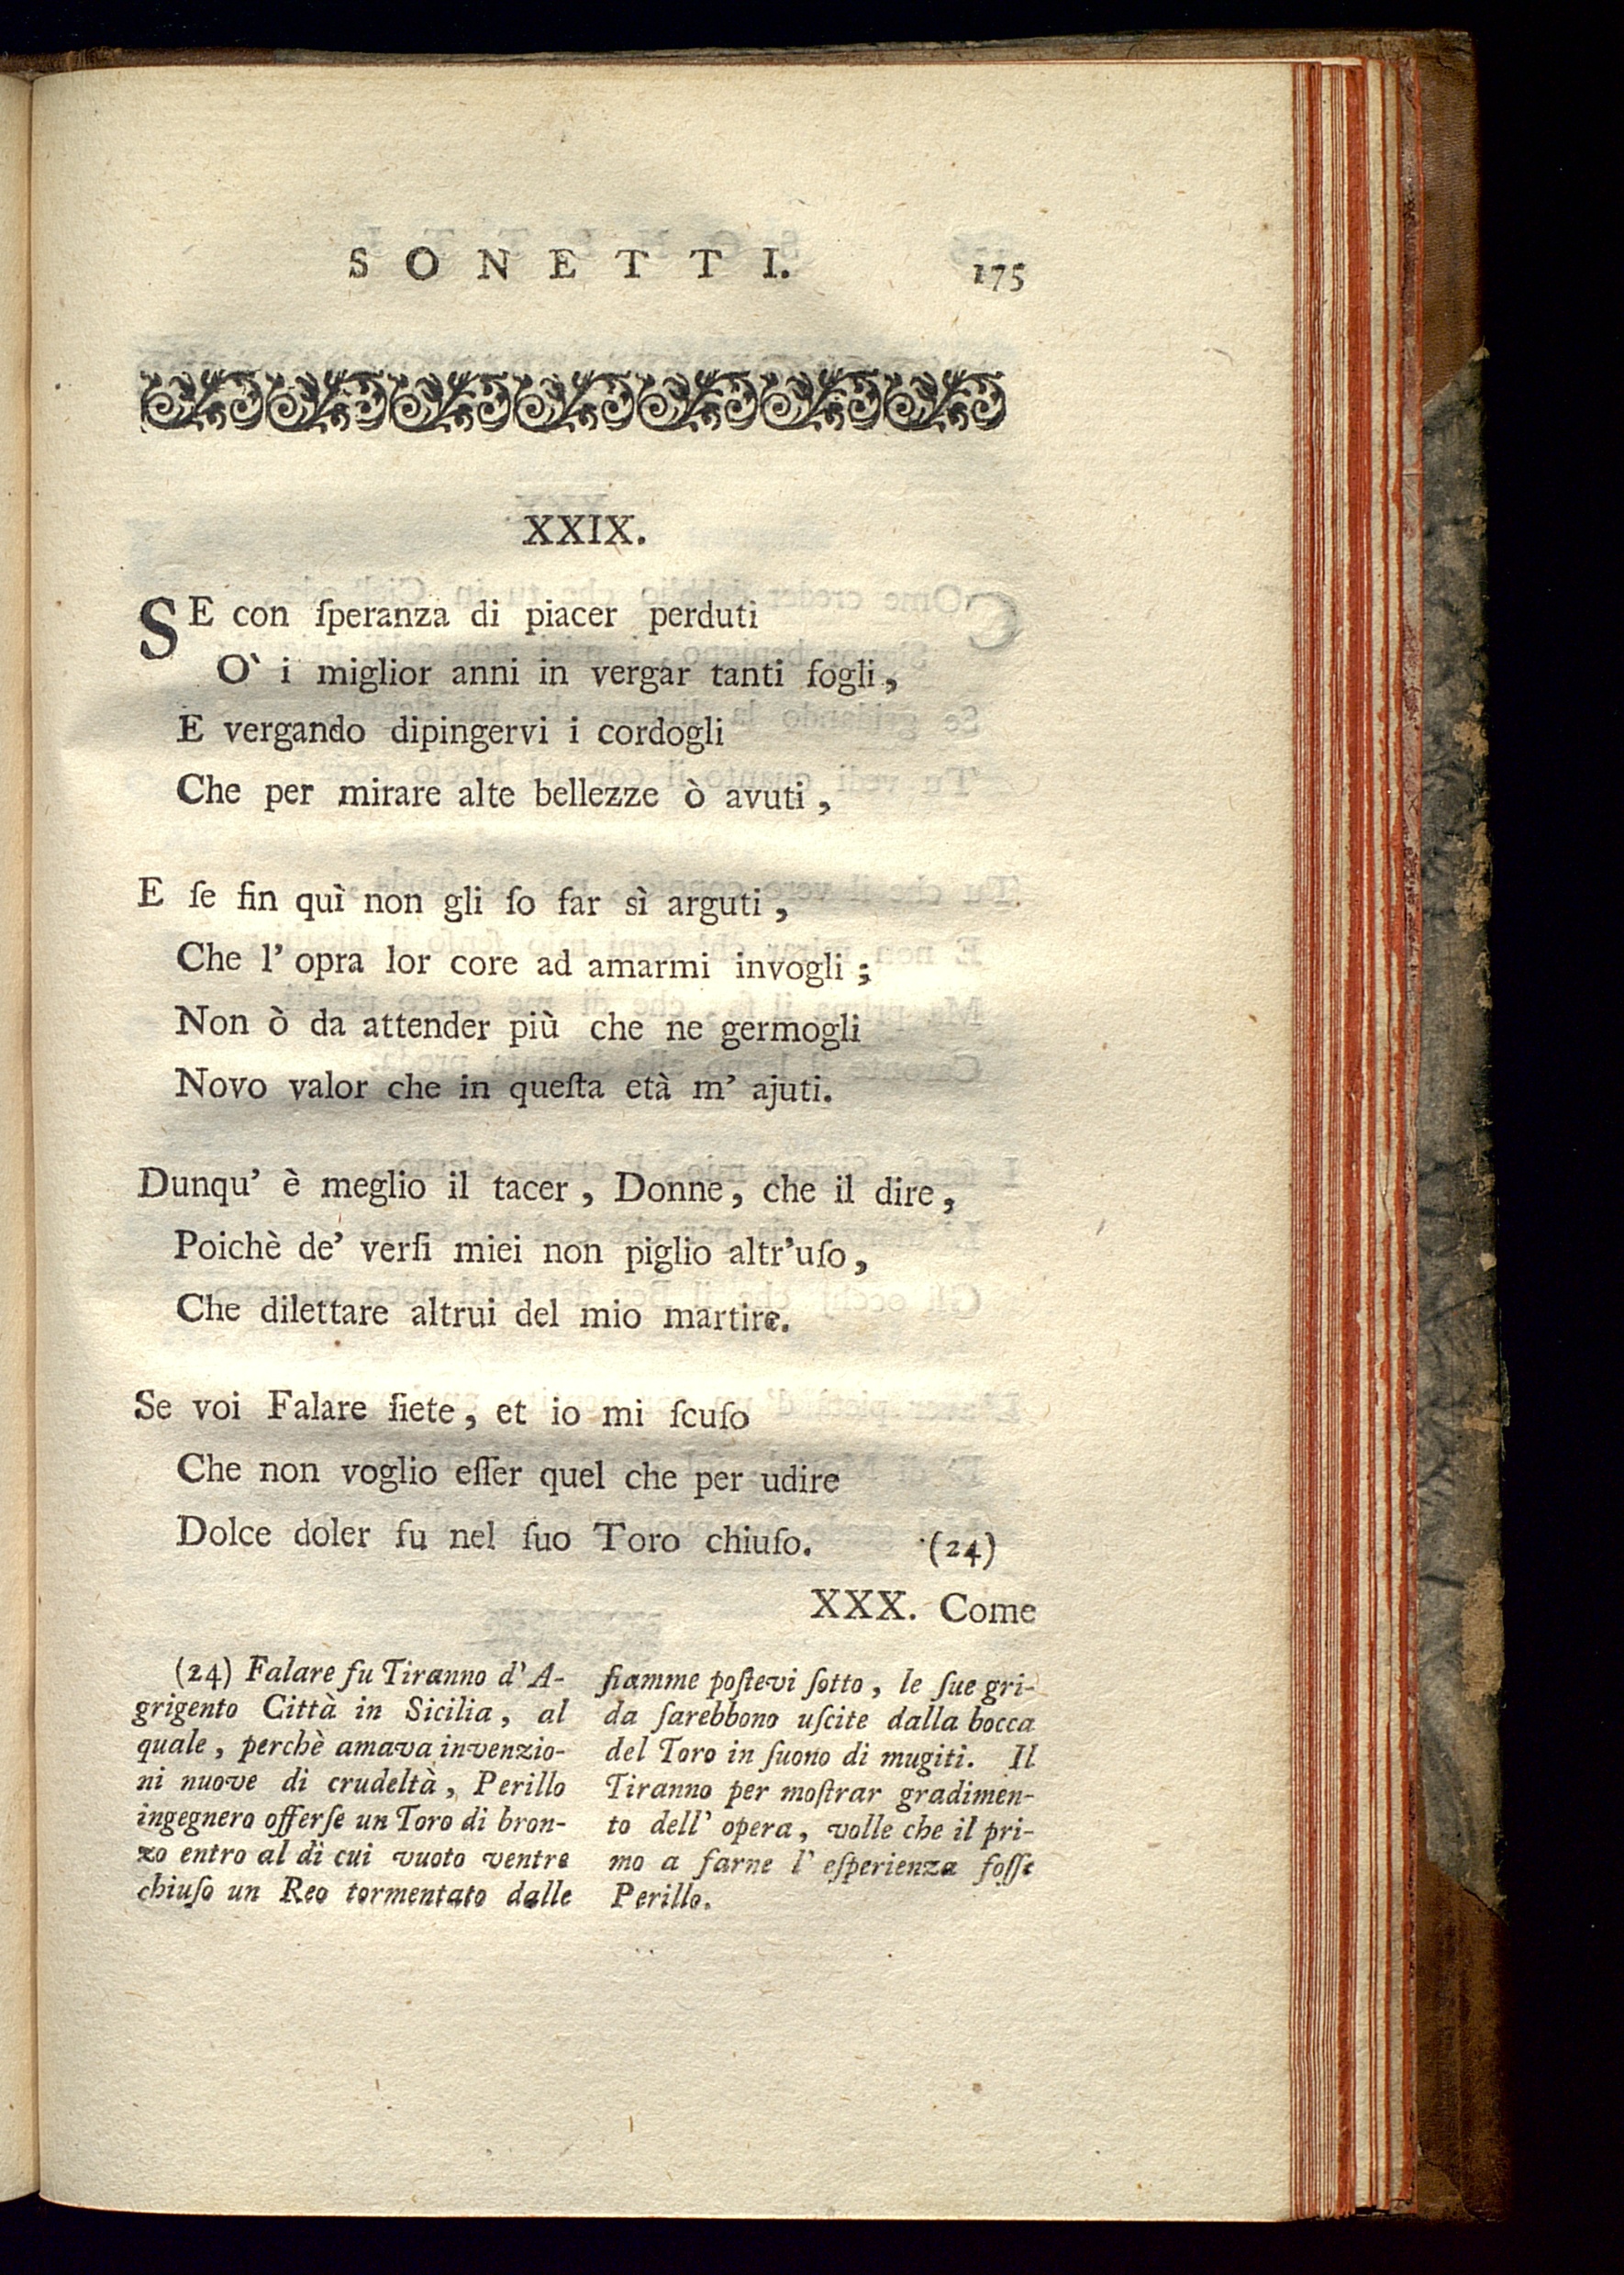 SONETTI. 175
XXIX.
SE con ſperanza di piacer perduti
O` i miglior anni in vergar tanti fogli,
E vergando dipingervi i cordogli
Che per mirare alte bellezze ò avuti,
E ſe fin quì non gli ſo far sì arguti,
Che l' opra lor core ad amarmi invogli;
Non ò da attender più che ne germogli
Novo valor che in queſta età m' ajuti.
Dunqu' è meglio il tacer, Donne, che il dire,
Poichè de' verſi miei non piglio altr'uſo,
Che dilettare altrui del mio martire.
Se voi Falare ſiete, et io mi ſcuſo
Che non voglio eſſer quel che per udire
Dolce doler fu nel ſuo Toro chiuſo. (24)
XXX. Come
(24) Falare fu Tiranno d' A-
grigento Città in Sicilia, al
quale, perchè amava invenzio-
ni nuove di crudeltà, Perillo
ingegnero offerſe un Toro di bron-
zo entro al di cui vuoto ventre
chiuſo un Reo tormentato dalle
fiamme poſtevi ſotto, le ſue gri-
da ſarebbono uſcite dalla bocca
del Toro in ſuono di mugiti. Il
Tiranno per moſtrar gradimen-
to dell' opera, volle che il pri-
mo a farne l' eſperienza foſſe
Perillo.